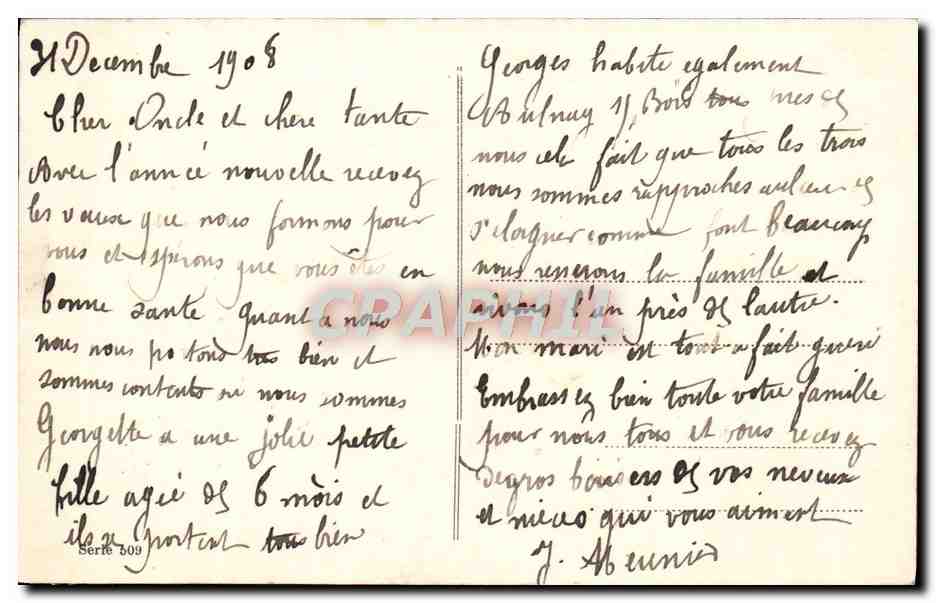 31 Decembre 1908
Cher Oncle et chere tante
Avec l'année nouvelle recevez
les vœux que nous formons pour
vous et espérons que vous êtes en
bonne sante quant a nous
nous nous portons tous bien et
sommes contents où nous sommes
Georgette a une jolie petite
fille agée de 6 mois et
ils se portent tous bien
Serie 509
Georges habite egalement
Aulnay s/ Bois tous près de
nous cela fait que tous les trois
nous sommes rapproches au lieu de
s'eloigner comme font beaucoup
nous resserons la famille et
vivons l'un près de lautre.
Mon mari est tout a fait gueri
Embrassez bien toute votre famille
pour nous tous et vous recevez
de gros baisers de vos neveux
et nieces qui vous aiment
J. Meunier
CPAPHIL